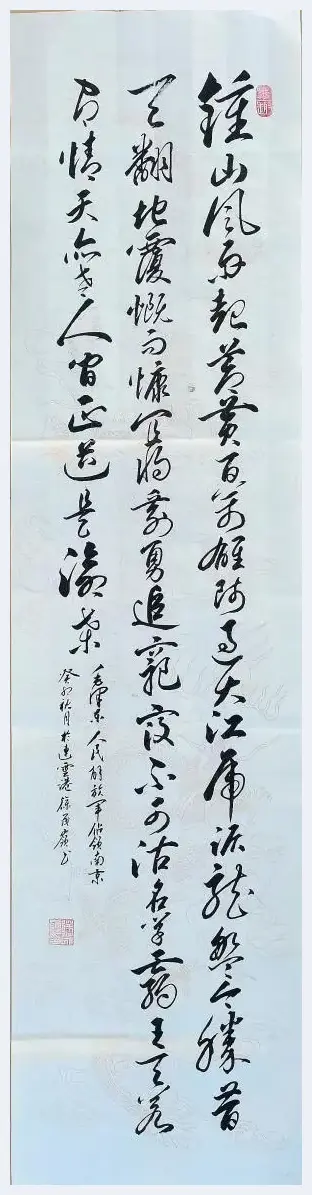 鍾山風雨起蒼黄百万雄师过大江虎踞龍盤今勝昔
天翻地覆慨而慷宜将剩勇追窮寇不可沽名学霸王天若
有情天亦老人间正道是滄桑
毛澤東人民解放军佔领南京
癸卯秋月於連雲港